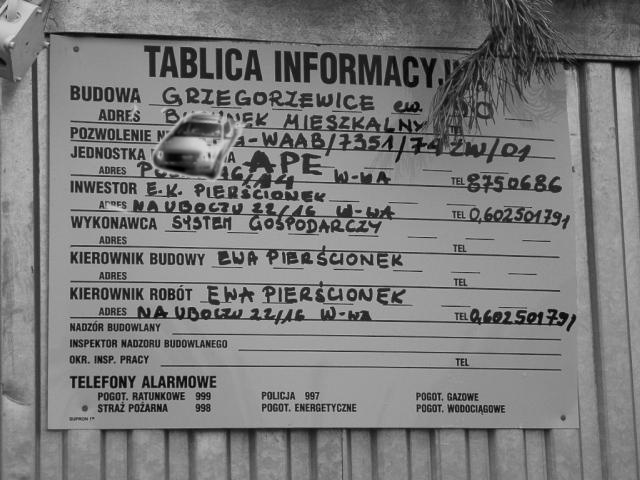 TABLICA INFORMACYJNA
BUDOWA GRZEGORZEWICE ew.
ADRES BUDYNEK MIESZKALNY
POZWOLENIE -WAAB/7351/74 ZW/01
JEDNOSTKA APE
ADRES W-WA TEL 8750686
INWESTOR E.K. PIERŚCIONEK
NA UBOCZU 22/16 W-WA TEL 0,602501791
WYKONAWCA SYSTEM GOSPODARCZY
ADRES TEL
KIEROWNIK BUDOWY EWA PIERŚCIONEK
ADRES TEL
KIEROWNIK ROBÓT EWA PIERŚCIONEK
ADRES NA UBOCZU 22/16 W-wa TEL 0,602501791
NADZÓR BUDOWLANY
INSPEKTOR NADZORU BUDOWLANEGO
OKR. INSP. PRACY TEL
TELEFONY ALARMOWE
POGOT. RATUNKOWE 999 POLICJA 997 POGOT. GAZOWE
STRAŻ POŻARNA 998 POGOT. ENERGETYCZNE POGOT. WODOCIĄGOWE